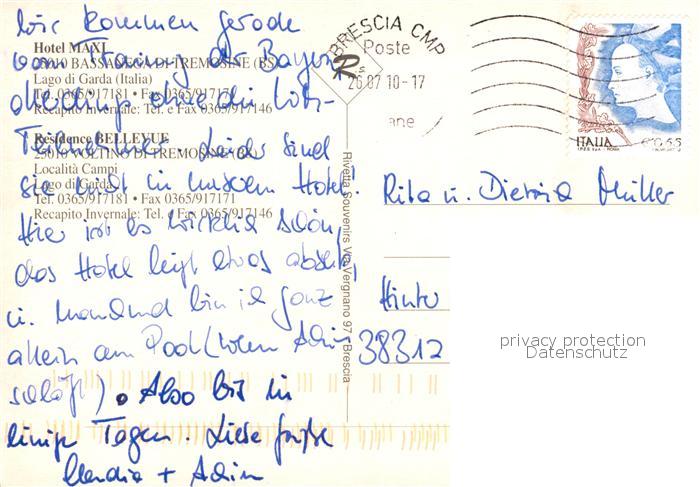 wir kommen gerade
vom Training der Bayern
allerdings ohne die WM-
Teilnehmer. Leider sind
sie nicht in unserem Hotel!
Hier ist es wirklich schön,
das Hotel liegt etwas abseits,
u. manchmal bin ich ganz
allein am Pool (wenn Achim
schläft). Also bis in
einigen Tagen. Liebe Grüße
Claudia + Achim
Hotel MAXI
25010 BASSANEGA DI TREMOSINE (BS)
Lago di Garda (Italia)
Tel. 0365/917181 • Fax 0365/917171
Recapito Invernale: Tel. e Fax 0365/917146
Residence BELLEVUE
25010 VOLTINO DI TREMOSINE (BS)
Località Campi
Lago di Garda
Tel. 0365/917181 • Fax 0365/917171
Recapito Invernale: Tel. e Fax 0365/917146
Rivetta Souvenirs Via Vergnano 97 - Brescia
BRESCIA CMP
Poste
26.07 10-17
ITALIA
€ 0,65
Rita u. Dietrich Müller
38312
privacy protection
Datenschutz